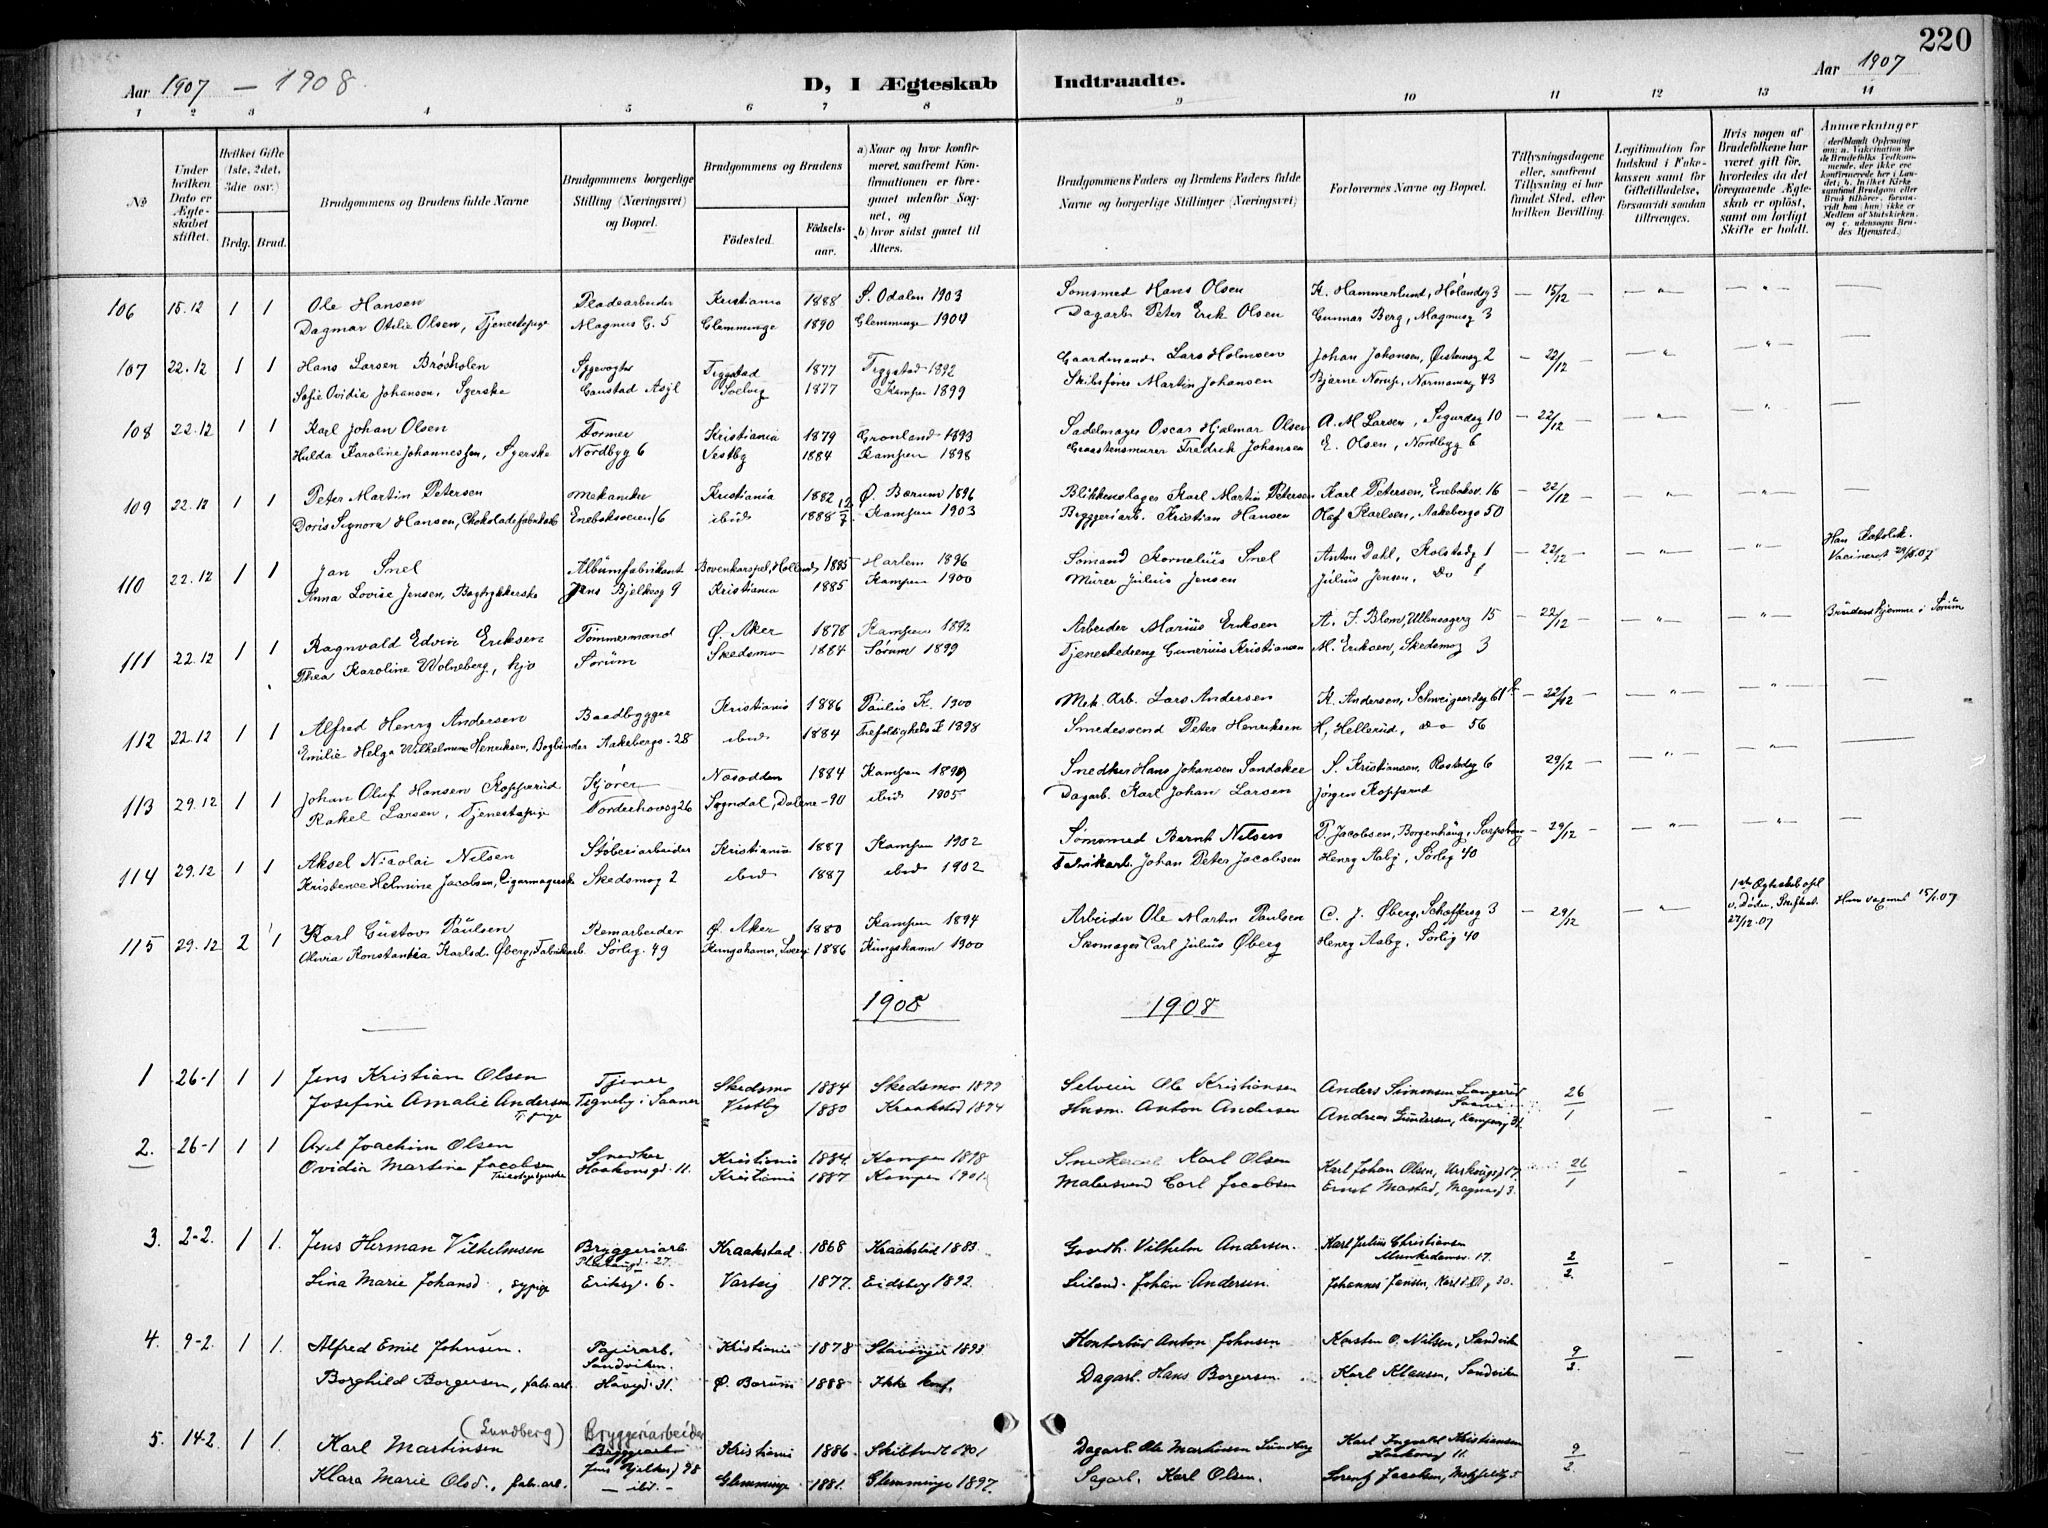 220
Aar 1907 — 1908.
D, I Ægteskab Indtraadte.
Aar 1907
1 2 3 4 5 6 7 8 9 10 11 12 13 14
No
Under hvilken Dato er Ægteskabet stiftet.
Hvilket Gifte (1ste, 2det, 3die osv.)
Brdg. Brud.
Brudgommens og Brudens fulde Navne
Brudgommens borgerlige Stilling (Næringsvei) og Bopæl.
Brudgommens og Brudens
Fødested.
Fødselsaar.
a) Naar og hvor konfirmeret, saafremt Konfirmationen er foregaaet udenfor Sognet, og
b) hvor sidst gaaet til Alters.
Brudgommens Faders og Brudens Faders fulde Navne og borgerlige Stillinger (Næringsvei)
Forlovernes Navne og Bopæl.
Tillysningsdagene eller, saafremt Tillysning ei har fundet Sted, efter hvilken Bevilling.
Legitimation for Indskud i Enkekassen samt for Giftetilladelse, forsaavidt saadan tiltrænges.
Hvis nogen af Brudefolkene har været gift før, hvorledes da det foregaaende Ægteskab er opløst, samt om lovligt Skifte er holdt.
Anmærkninger
106 15.12 1 1 Ole Hansen Pladearbeider Kristiania 1888 S. Odalen 1903 Sømsmed Hans Olsen K. Hammerlund, Hølandsg 3 — 15/12 — — " — — " —
Dagmar Otilie Olsen, Tjenestepige Magnus G. 5 Glemminge 1890 Glemminge 1904 Dagarb. Peter Erik Olsen Gunnar Berg, Magnusg 3
107 22.12 1 1 Hans Larsen Brøsholen Sygevogter 1877 1892 Gaardmand Lars Holmsen Johan Johansen, Østensg 2 — 22/12 — — " — — " —
Sofie Ovidia Johansen, Syerske Gaustad Asyl Solvig 1877 Kampen 1899 Skibsfører Martin Johansen Bjarne Norup, Normannsg 43
108 22.12 1 1 Karl Johan Olsen Former Kristiania 1879 Grønland 1893 Sadelmager Oscar Hjalmar Olsen A. M. Larsen, Sigurdsg 10 — 22/12 — — " — — " —
Hulda Karoline Johannessen, Syerske Nordbyg 6 Vestby 1884 Kampen 1898 Graastensmurer Fredrik Johansen E. Olsen, Nordbyg 6
109 22.12 1 1 Peter Martin Petersen Mekaniker Kristiania 1882 Ø. Bærum 1896 Blikkenslager Karl Martin Petersen Karl Petersen, Eneboksv. 16 — 22/12 — — " — — " —
Doris Signora Hansen, Eneboksveien 16 ibid 1888 Kampen 1903 Bryggeriarb. Kristian Hansen Olaf Karlsen, Aakebergv 50
110 22.12 1 1 Jan Snel Albumfabrikant Bovenkarspel, Holland 1885 Harlem 1896 Sømand Kornelius Snel Anton Dahl, Kolstadg 1 — 22/12 — — " — — " — Han Katolik.
Anna Lovise Jensen, Bogtrykkerske Jens Bjelkesg 9 Kristiania 1885 Kampen 1900 Murer Julius Jensen Julius Jensen, do 1
111 22.12 1 1 Ragnvald Edvin Eriksen Tømmermand Ø. Aker 1878 Kampen 1892 Arbeider Marius Eriksen A. F. Blom, Ullensagerg 15 — 22/12 — — " — — " — Brudens hjemme i Sørum
Thea Karoline Wolneberg, hjo Sørum Skedsmo 1884 Sørum 1899 Tjenestedreng Gunerius Kristiansen M. Eriksen, Skedsmog 3
112 22.12 1 1 Alfred Henry Andersen Baadbygger Kristiania 1886 Paulus K. 1900 Mek. Arb. Lars Andersen K. Andersen, Schweigaardsg 61 — 22/12 — — " — — " —
Emilie Helga Wilhelmine Henriksen, Bogbinder Aakebergv. 28 ibid 1884 Trefoldigheds K 1898 Smedesvend Peter Henriksen H. Hellerud, do 56
113 29.12 1 1 Johan Oluf Hansen Kopperud Kjører Næsodden 1884 Kampen 1899 Snedker Hans Johansen S. Kristiansen, Rostedsg 6 29/12 — — " — — " —
Rakel Larsen, Tjenestepige Nordrehovsg 26 Sogndal, Dalene -90 ibid 1905 Dagarb. Karl Johan Larsen Jørgen Kopperud
114 29.12 1 1 Aksel Nicolai Nilsen Støberiarbeider Kristiania 1887 Kampen 1902 Sømsmed Bernt Nilsen P. Jacobsen, Borgenhaug, Sarpsborg — 29/12 — — " — — " —
Kristence Helmine Jacobsen, Cigarmagerske Skedsmog 2 ibid 1887 ibid 1902 Fabrikarb. Johan Peter Jacobsen Henry Aaby, Sørlig 40
115 29.12 2 1 Karl Gustav Paulsen Remarbeider Ø. Aker 1880 Kampen 1894 Arbeider Ole Martin Paulsen C. J. Øberg, Schøffersg 3 — 29/12 — — " — 1ste Ægteskab opl v. Døden, Skifteat. 27/12.07
Olivia Konstantia Karlsd. Øberg, Fabrikarb Sørlig. 49 Kungshamn, Sverig 1886 Kungshamn 1900 Skomager Carl Julius Øberg Henry Aaby, Sørlig 40
1908 1908
1 26-1 1 1 Jens Kristian Olsen Tjener Skedsmo 1884 Skedsmo 1899 Selveier Ole Kristiansen Anders Simonsen Langerud 26/1
Josefine Amalie Andersen Tj. pige Tegneby i Saaner Vestby 1880 Kraakstad 1894 Husm. Anton Andersen Andreas Gundersen, Kampeng 31.
2. 26-1 1 1 Axel Joachim Olsen Snedker Kristiania 1884. Kampen 1898 Karl Olsen Karl Johan Olsen, Urskougsg 17. 26/1
Ovidia Martine Jacobsen Haakonsgd. 11. Kristiania 1887 Kampen 1901. Malersvend Carl Jacobsen Ernst Mastad, Magnusg 3.
3. 2-2. 1 1. Jens Herman Vilhelmsen Bryggeriarb. Kraakstad. 1868 Kraakstad 1883. Gaardb. Vilhelm Andersen. Karl Julius Christiansen Munkedamsv. 17. 2/2.
Lina Marie Johansd., sypige Eriksg. 6. Varteig 1877. Eidsberg 1892. Leiland. Johan Andersen. Johannes Jansen, Karl d. XII g 30.
4. 9-2. 1 1. Alfred Emil Johnsen. Papirarb. Sandviken. Kristiania 1878 Stavanger 1893. Kontorbud Anton Johnsen Karsten O. Nilsen, Sandviken 9/2.
Borghild Borgersen, fab. arb. 31. Ø. Bærum 1888 Ikke konf. Dagarb. Hans Borgersen. Karl Klausen, Sandviken
5. 14-2. 1 1. Karl Martinsen (Lundberg) Bryggeriarbeider Kristiania 1886 1901. Dagarb. Ole Martinsen Lundberg Karl Ingvald Kristiansen Haakonsg 11. 9/2.
Klara Marie Olsd., fab. arb. — ibd. — Glemminge 1881. Glemminge 1897. Sagarb. Karl Olsen. Lorentz Jacobsen,